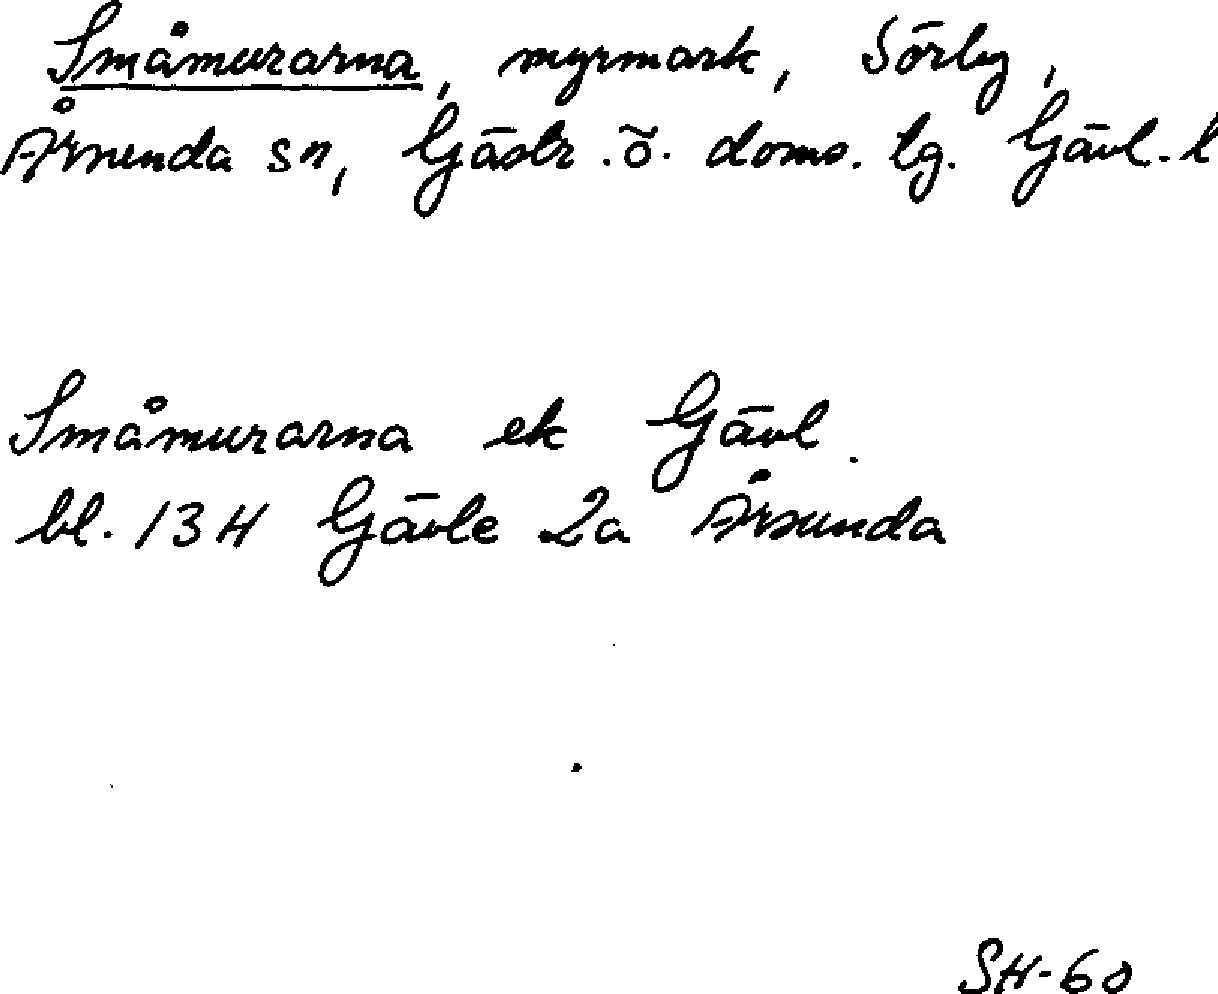 Småmurarna, myrmark, Sörby,
Årsunda sn, Gästr. ö. doms. tg. Gävl. l
Småmurarna ek Gävl.
bl. 13 H Gävle 2a Årsunda
SH-60